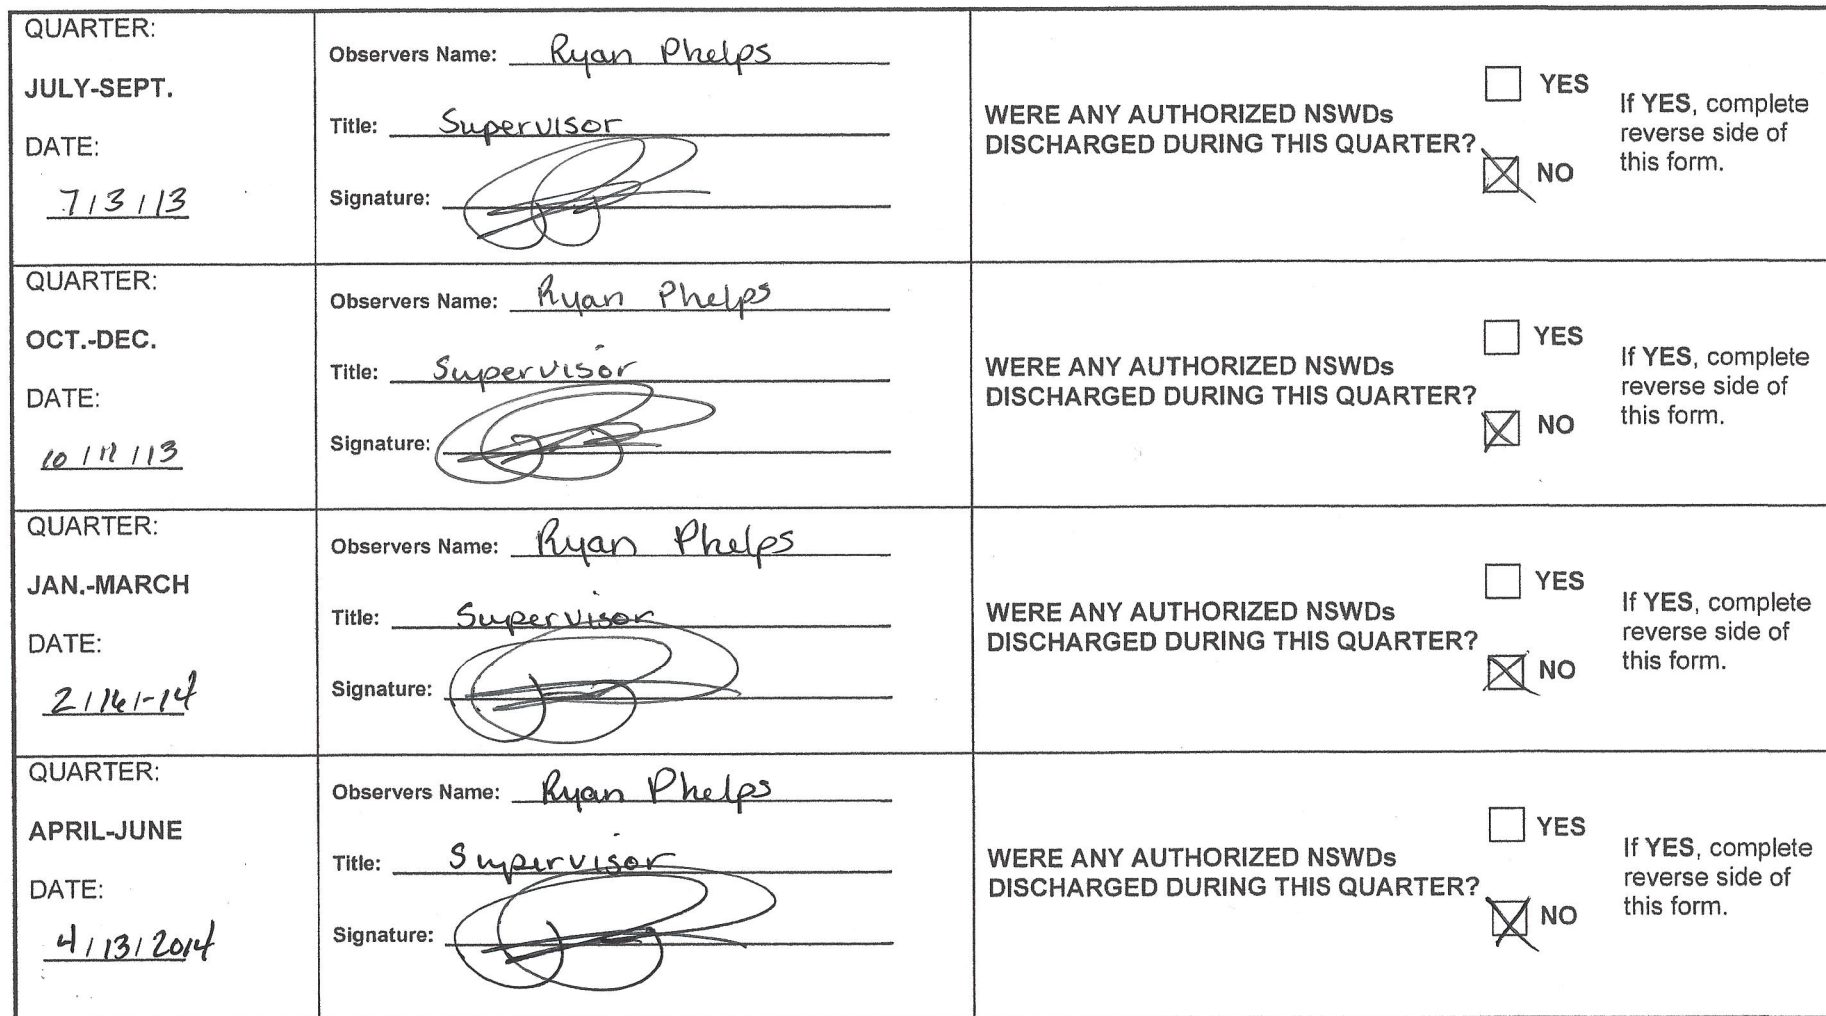 QUARTER:
JULY-SEPT.
DATE:
7/3/13
Observers Name: Ryan Phelps
Title: Supervisor
Signature:
WERE ANY AUTHORIZED NSWDs
DISCHARGED DURING THIS QUARTER?
YES
NO
If YES, complete
reverse side of
this form.
QUARTER:
OCT.-DEC.
DATE:
10/ /13
Observers Name: Ryan Phelps
Title: Supervisor
Signature:
WERE ANY AUTHORIZED NSWDs
DISCHARGED DURING THIS QUARTER?
YES
NO
If YES, complete
reverse side of
this form.
QUARTER:
JAN.-MARCH
DATE:
2/16/-14
Observers Name: Ryan Phelps
Title: Supervisor
Signature:
WERE ANY AUTHORIZED NSWDs
DISCHARGED DURING THIS QUARTER?
YES
NO
If YES, complete
reverse side of
this form.
QUARTER:
APRIL-JUNE
DATE:
4/13/2014
Observers Name: Ryan Phelps
Title: Supervisor
Signature:
WERE ANY AUTHORIZED NSWDs
DISCHARGED DURING THIS QUARTER?
YES
NO
If YES, complete
reverse side of
this form.